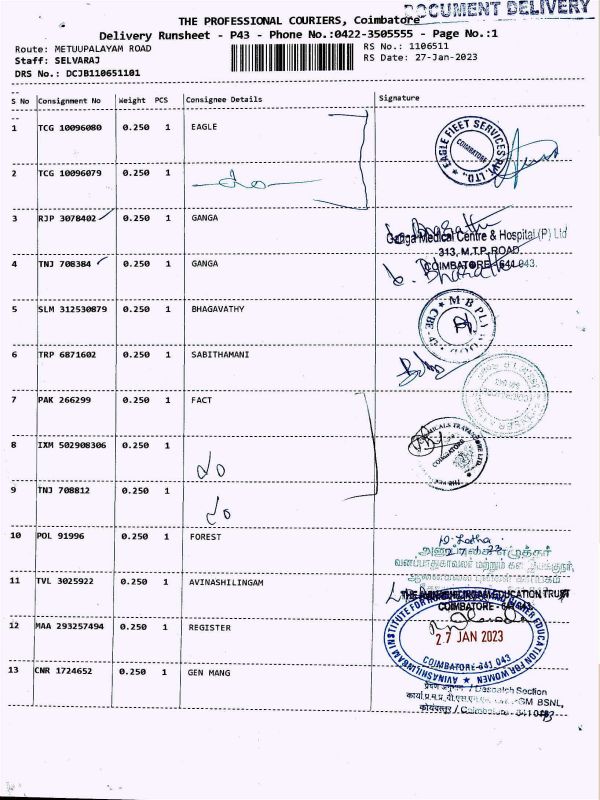 DOCUMENT DELIVERY
THE PROFESSIONAL COURIERS, Coimbatore
Delivery Runsheet - P43 - Phone No.:0422-3505555 - Page No.:1
Route: METUUPALAYAM ROAD
RS No.: 1106511
Staff: SELVARAJ
RS Date: 27-Jan-2023
DRS No.: DCJB110651101
S No Consignment No Weight PCS Consignee Details Signature
1 TCG 10096080 0.250 1 EAGLE
EAGLE FLEET SERVICES PVT. LTD., COIMBATORE
2 TCG 10096079 0.250 1
3 RJP 3078402 0.250 1 GANGA
Ganga Medical Centre & Hospital (P) Ltd
313, M.T.P. ROAD,
4 TNJ 708384 0.250 1 GANGA
COIMBATORE - 641 043.
5 SLM 312530879 0.250 1 BHAGAVATHY
6 TRP 6871602 0.250 1 SABITHAMANI
7 PAK 266299 0.250 1 FACT
8 IXM 502908306 0.250 1
9 TNJ 708812 0.250 1
10 POL 91996 0.250 1 FOREST
11 TVL 3025922 0.250 1 AVINASHILINGAM
THE AVINASHILINGAM EDUCATION TRUST
COIMBATORE - 641 043.
12 MAA 293257494 0.250 1 REGISTER
AVINASHILINGAM INSTITUTE FOR HOME SCIENCE AND HIGHER EDUCATION FOR WOMEN
27 JAN 2023
COIMBATORE-641 043
13 CNR 1724652 0.250 1 GEN MANG
प्रेषण अनुभाग / Despatch Section
GM BSNL,
कोयंबत्तूर / Coimbatore